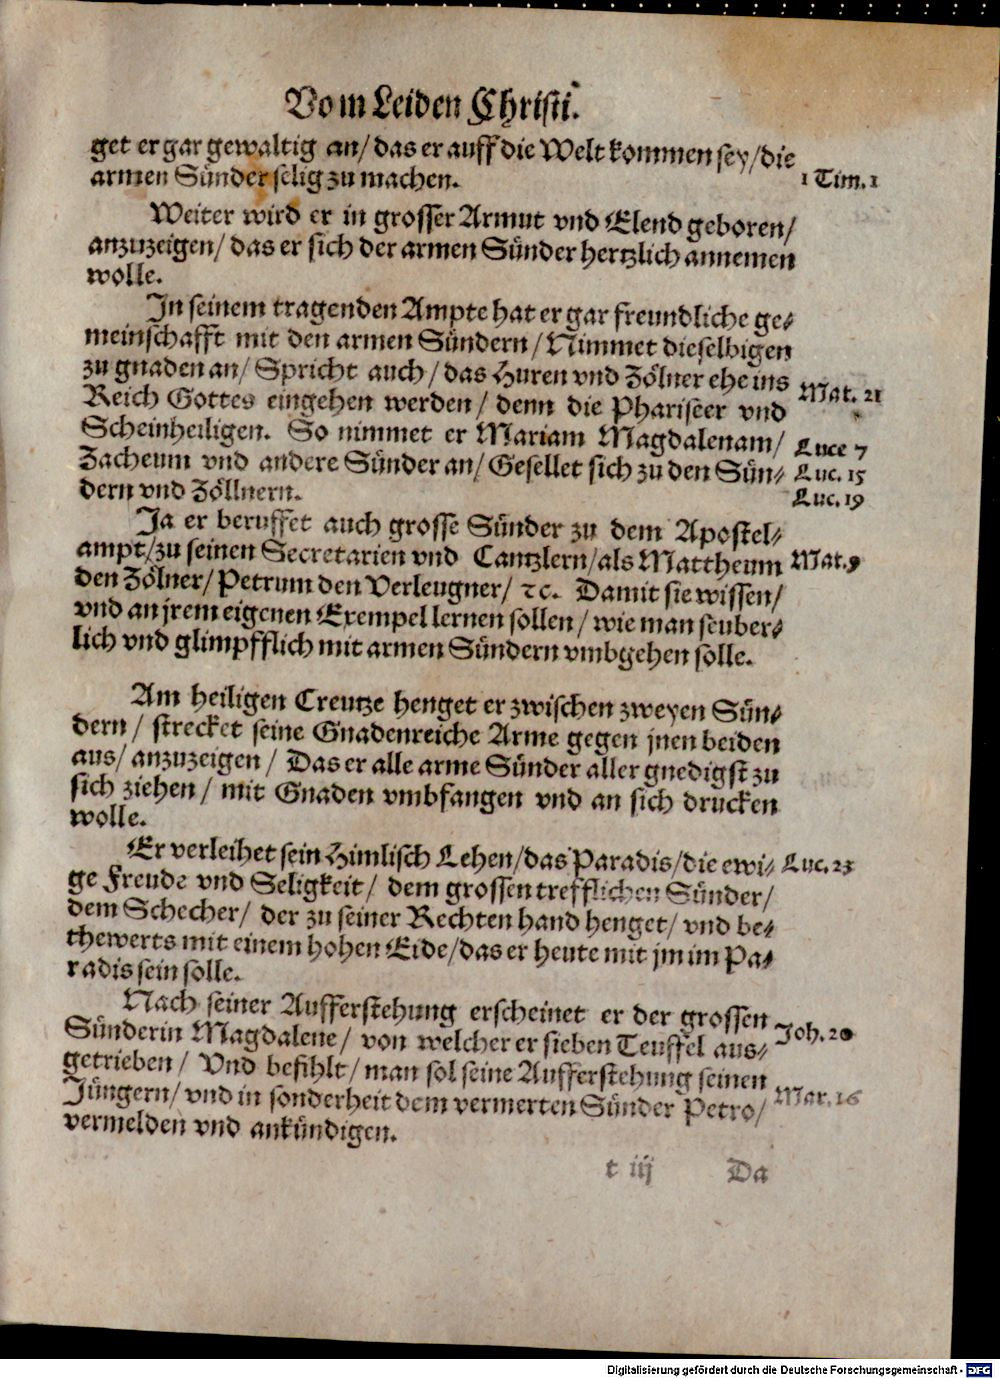 Vom Leiden Christi.
get er gar gewaltig an/ das er auff die Welt kommen sey/ die
armen Sünder selig zu machen.
1 Tim. 1
Weiter wird er in grosser Armut vnd Elend geboren/
anzuzeigen/ das er sich der armen Sünder hertzlich annemen
wolle.
In seinem tragenden Ampte hat er gar freundliche ge-
meinschafft mit den armen Sündern/ Nimmet dieselbigen
zu gnaden an/ Spricht auch/ das Huren vnd Zölner ehe ins
Mat. 21
Reich Gottes eingehen werden/ denn die Phariseer vnd
Scheinheiligen. So nimmet er Mariam Magdalenam/
Luce 7
Zacheum vnd andere Sünder an/ Gesellet sich zu den Sün-
Luc. 15
dern vnd Zöllnern.
Luc. 19
Ja er beruffet auch grosse Sünder zu dem Apostel-
ampt/ zu seinen Secretarien vnd Cantzlern/ als Mattheum
Mat. 9
den Zölner/ Petrum den Verleugner/ ꝛc. Damit sie wissen/
vnd an jrem eigenen Exempel lernen sollen/ wie man seuber-
lich vnd glimpfflich mit armen Sündern vmbgehen solle.
Am heiligen Creutze henget er zwischen zweyen Sün-
dern/ strecket seine Gnadenreiche Arme gegen jnen beiden
aus/ anzuzeigen/ Das er alle arme Sünder aller gnedigst zu
sich ziehen/ mit Gnaden vmbfangen vnd an sich drucken
wolle.
Er verleihet sein Himlisch Lehen/ das Paradis/ die ewi-
Luc. 23
ge Freude vnd Seligkeit/ dem grossen trefflichen Sünder/
dem Schecher/ der zu seiner Rechten hand henget/ vnd be-
thewerts mit einem hohen Eide/ das er heute mit jm im Pa-
radis sein solle.
Nach seiner Aufferstehung erscheinet er der grossen
Sünderin Magdalene/ von welcher er sieben Teuffel aus-
Joh. 20
getrieben/ Vnd befihlt/ man sol seine Aufferstehung seinen
Jüngern/ vnd in sonderheit dem vermerten Sünder Petro/
Mar. 16
vermelden vnd ankündigen.
t iij Da
Digitalisierung gefördert durch die Deutsche Forschungsgemeinschaft - DFG